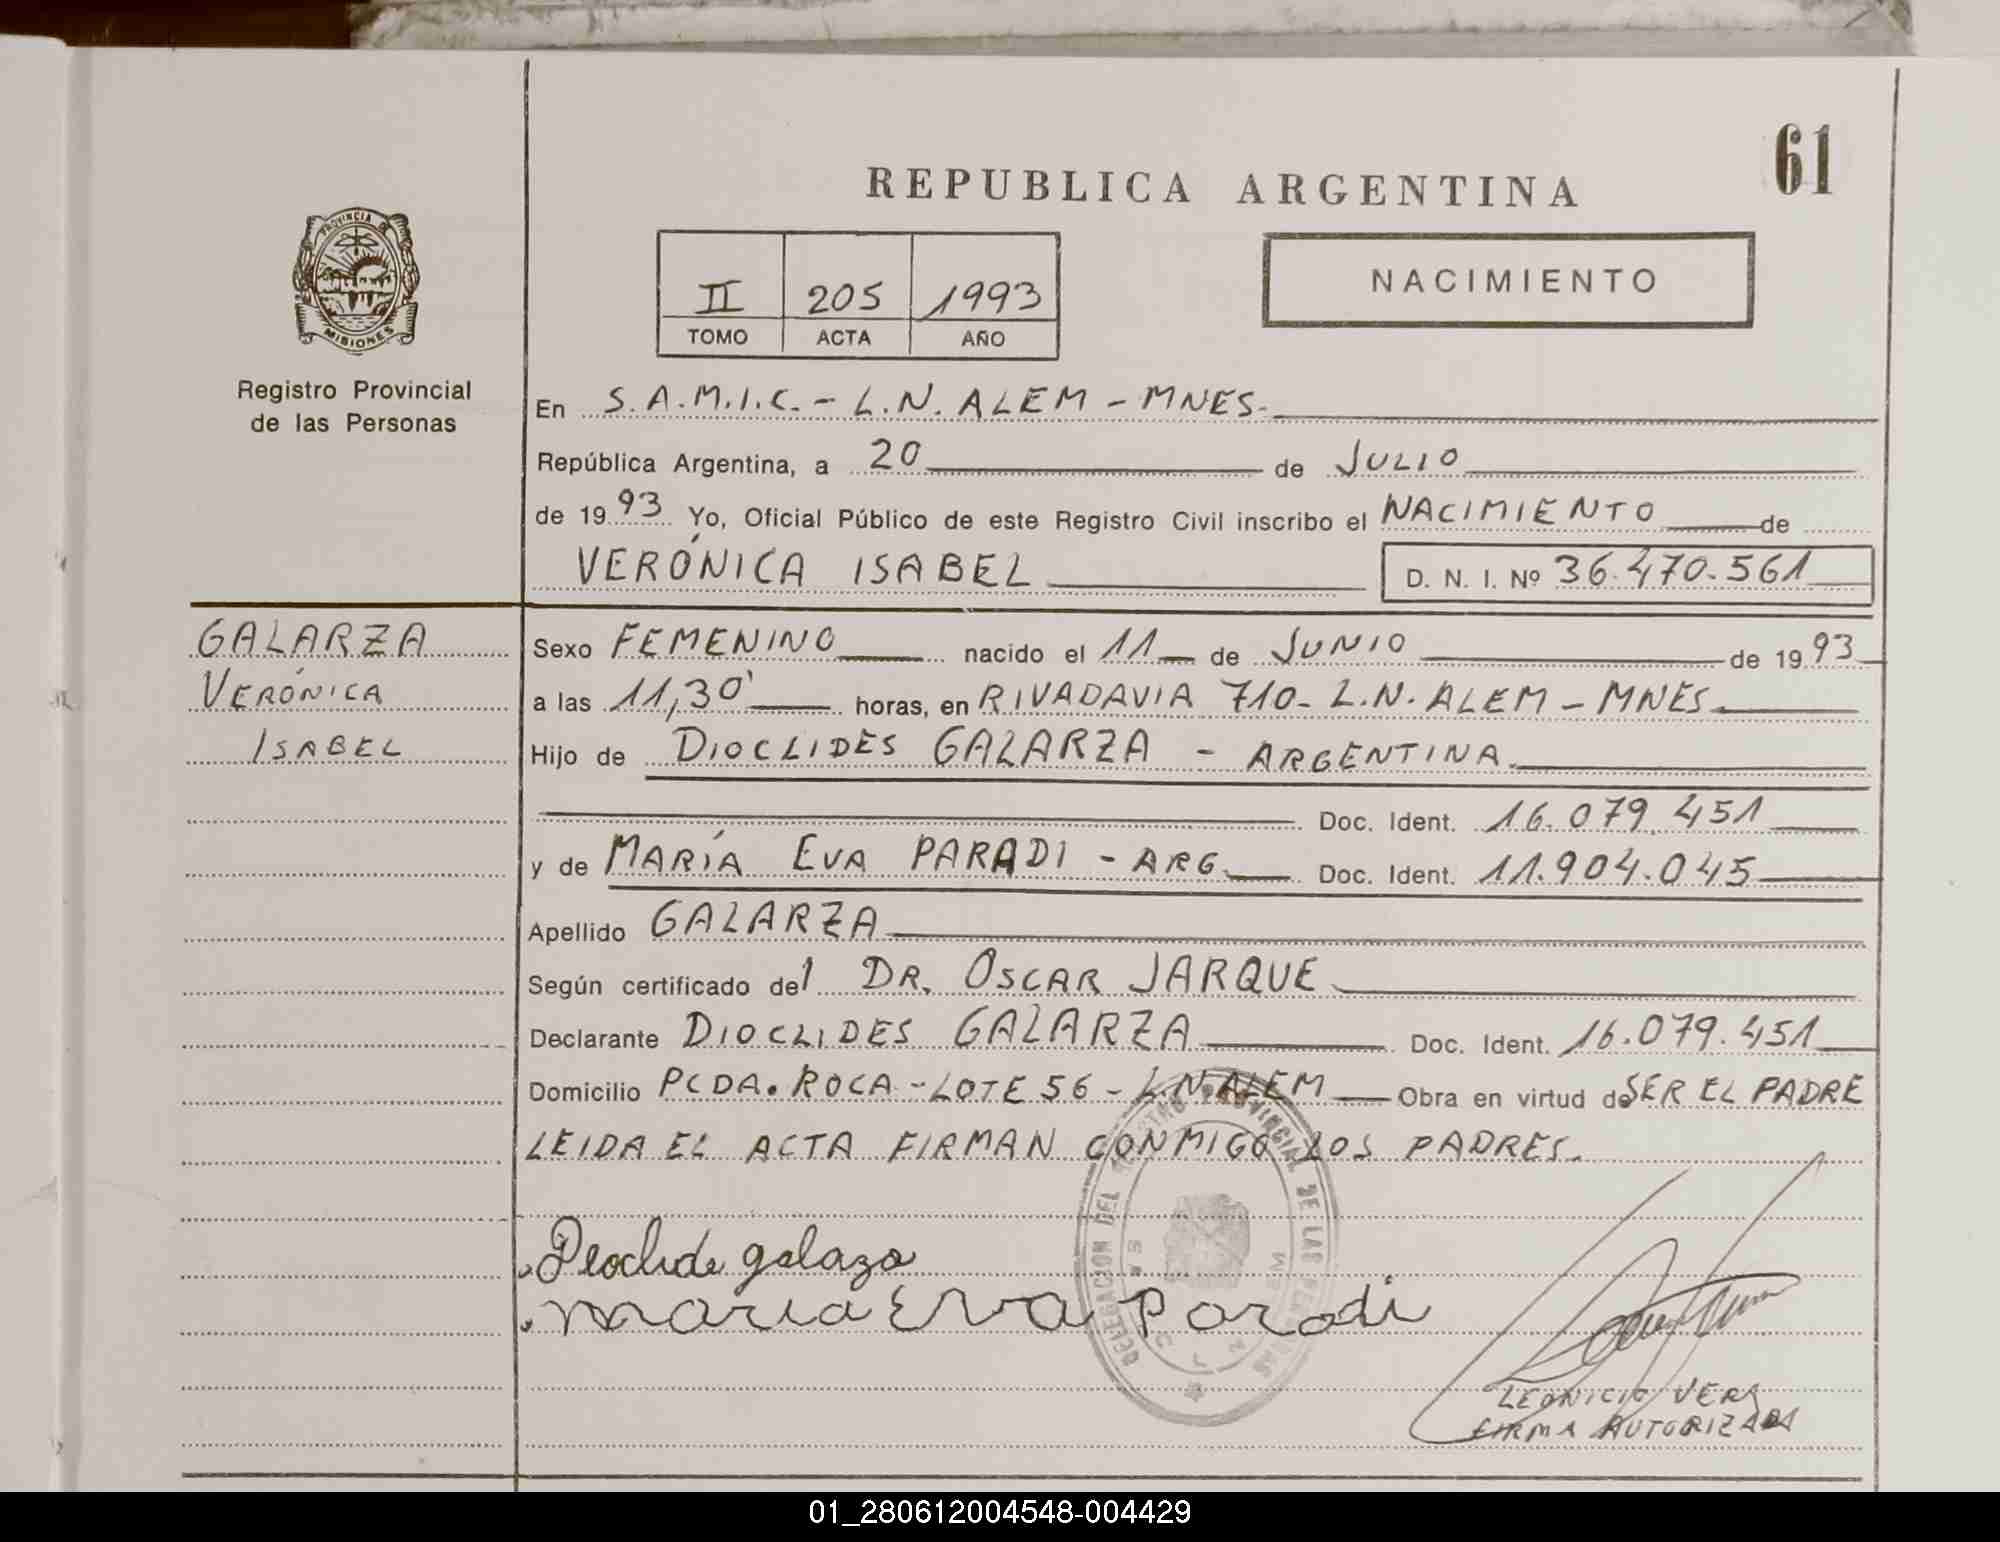 61
REPUBLICA ARGENTINA
PROVINCIA DE
MISIONES
Registro Provincial
de las Personas
II 205 1993
TOMO ACTA AÑO
NACIMIENTO
En S.A.M.I.C. - L.N. ALEM - MNES.
República Argentina, a 20 de JULIO
de 1993 Yo, Oficial Público de este Registro Civil inscribo el NACIMIENTO de
VERÓNICA ISABEL D. N. I. Nº 36.470.561
GALARZA
VERÓNICA
ISABEL
Sexo FEMENINO nacido el 11 de JUNIO de 1993
a las 11,30' horas, en RIVADAVIA 710 - L.N. ALEM - MNES.
Hijo de DIOCLIDES GALARZA - ARGENTINA.
Doc. Ident. 16.079.451
y de MARÍA EVA PARADI - ARG. Doc. Ident. 11.904.045
Apellido GALARZA
Según certificado del DR. OSCAR JARQUE
Declarante DIOCLIDES GALARZA Doc. Ident. 16.079.451
Domicilio PCDA. ROCA - LOTE 56 - L.N. ALEM Obra en virtud de SER EL PADRE
LEIDA EL ACTA FIRMAN CONMIGO LOS PADRES.
DELEGACION DEL REGISTRO PROVINCIAL DE LAS PERSONAS
Dioclide galaza
maria Eva Paradi
LEONICIO VERA
FIRMA AUTORIZADA
01_280612004548-004429